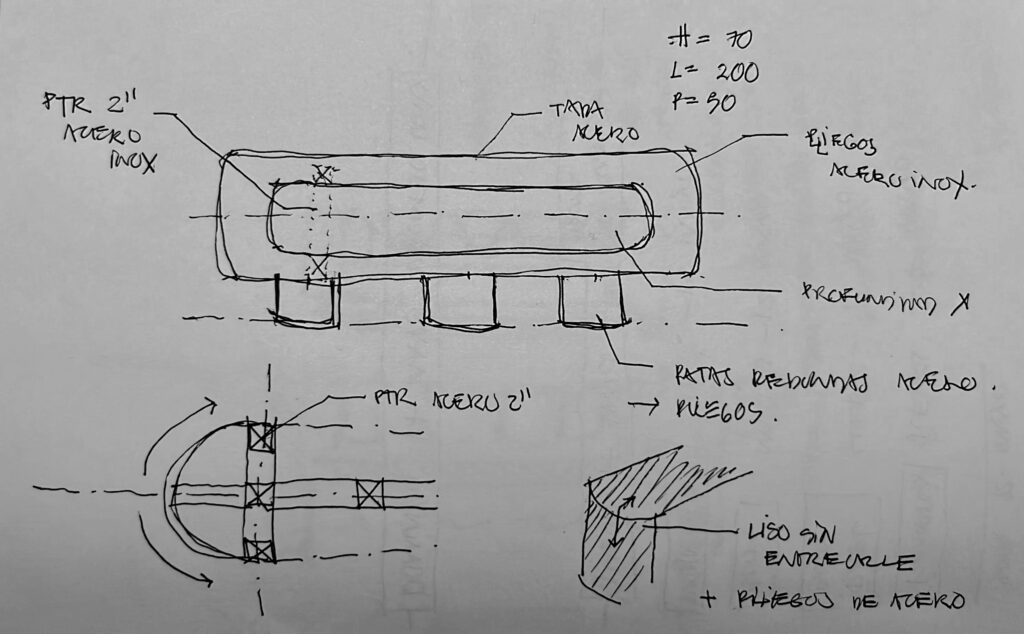 H = 70
L = 200
P = 50
PTR 2"
ACERO
INOX
TAPA
ACERO
PLIEGOS
ACERO INOX.
PROFUNDIDAD X
PATAS REDONDAS ACERO.
→ PLIEGOS.
PTR ACERO 2"
LISO SIN
ENTRECALLE
+ PLIEGOS DE ACERO